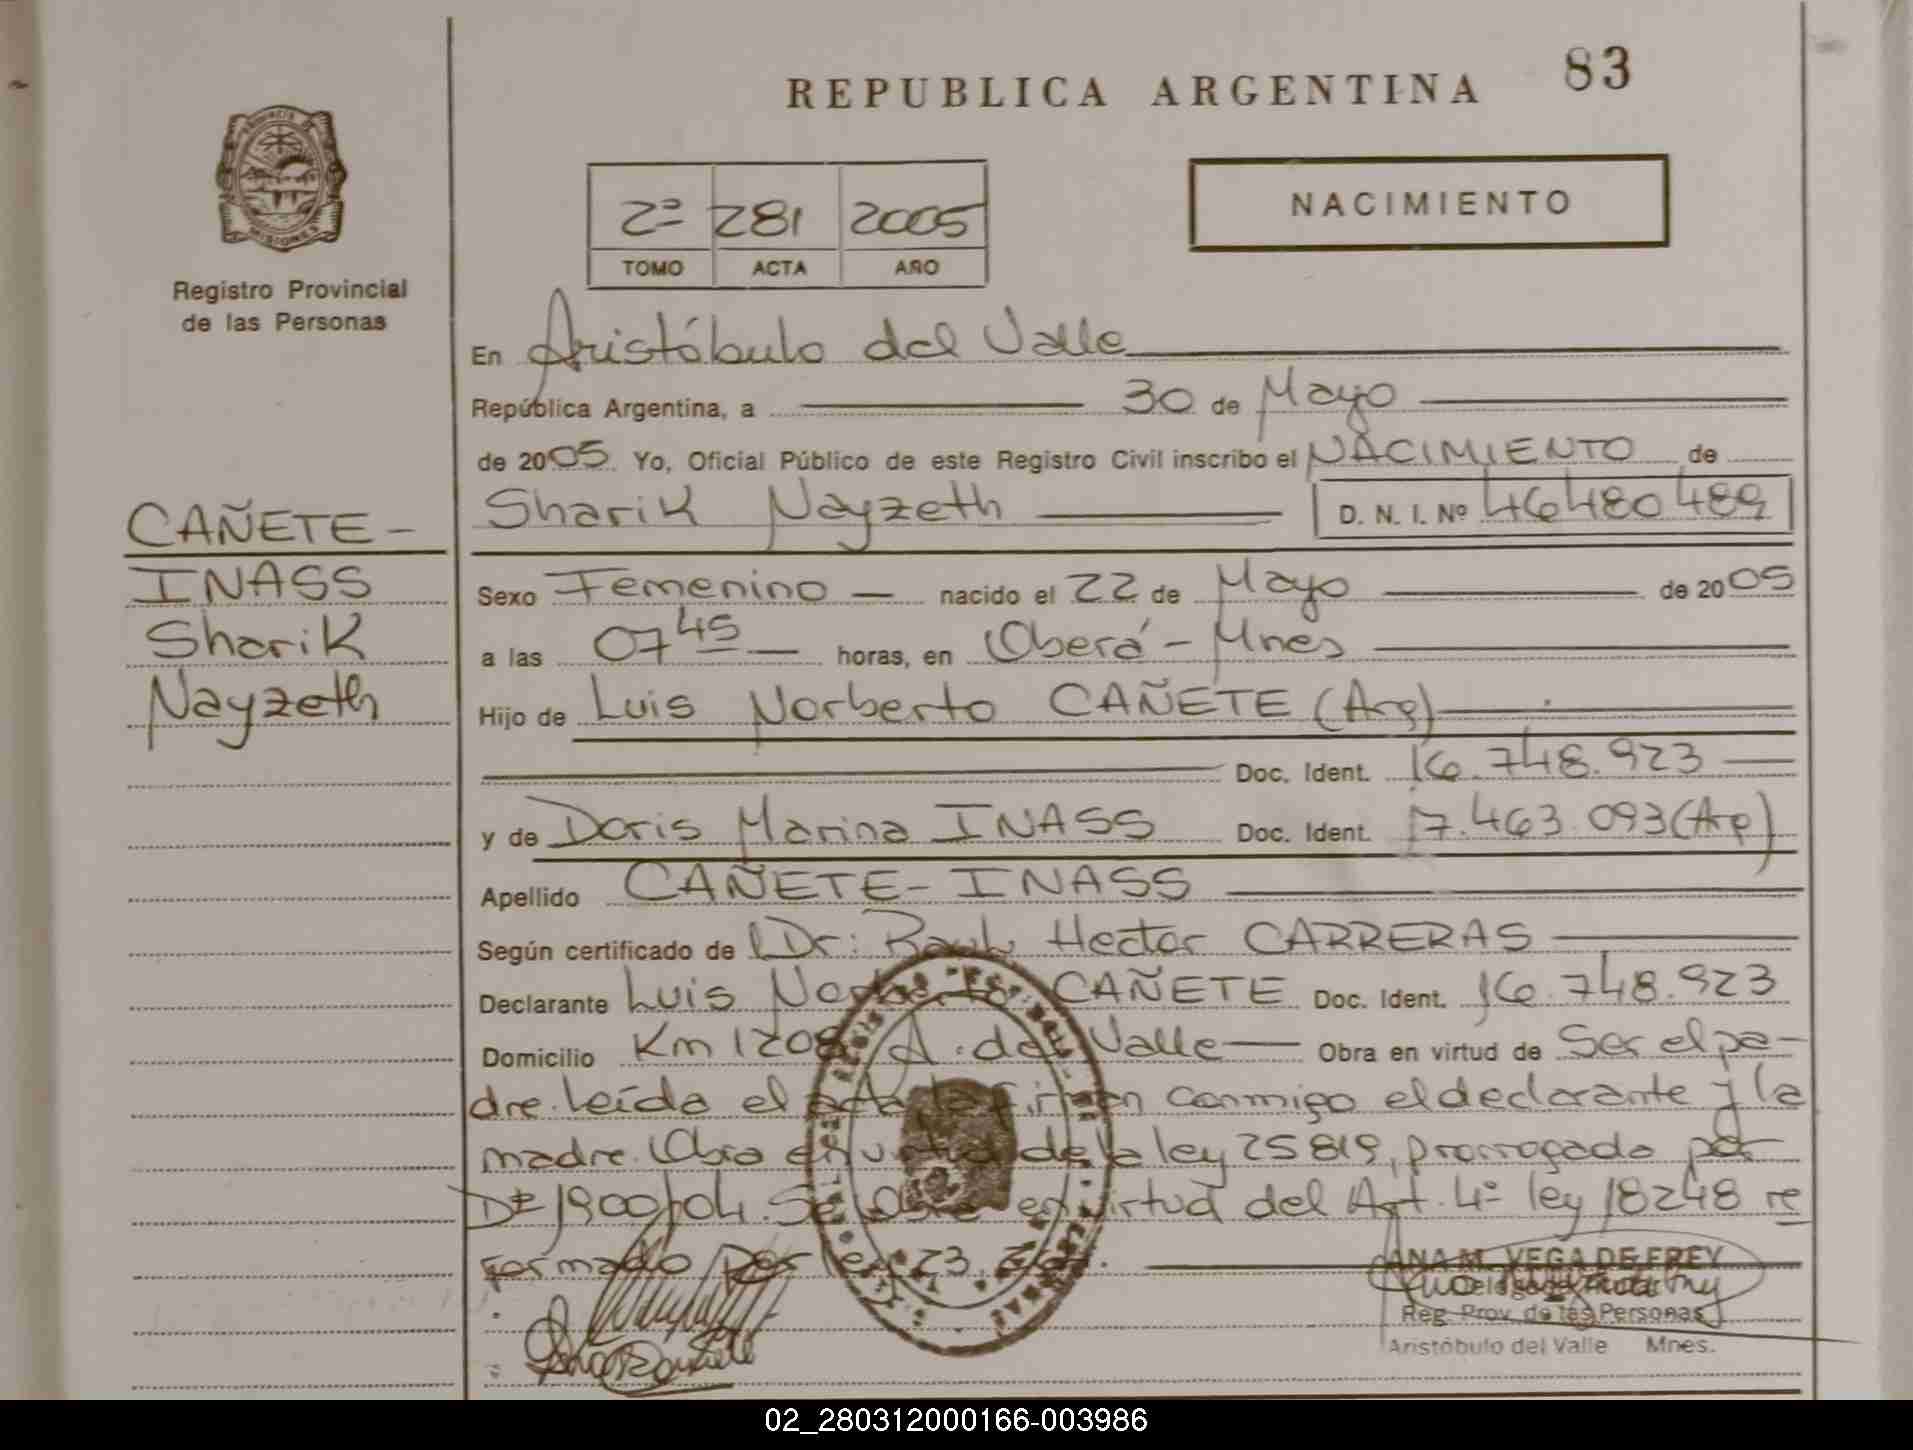 83
REPUBLICA ARGENTINA
PROVINCIA DE
MISIONES
Registro Provincial
de las Personas
2º 281 2005
TOMO ACTA AÑO
NACIMIENTO
CAÑETE-
INASS
Sharik
Nayzeth
En Aristóbulo del Valle
República Argentina, a 30 de Mayo
de 2005. Yo, Oficial Público de este Registro Civil inscribo el NACIMIENTO de
Sharik Nayzeth D. N. I. Nº 46480489
Sexo Femenino nacido el 22 de Mayo de 2005
a las 07 45 horas, en Oberá - Mnes
Hijo de Luis Norberto CAÑETE (Arg)
Doc. Ident. 16.748.923
y de Doris Marina INASS Doc. Ident. 17.463.093 (Arg)
Apellido CAÑETE - INASS
Según certificado de Dr: Raul Hector CARRERAS
Declarante Luis Norberto CAÑETE Doc. Ident. 16.748.923
Domicilio Km 1208 A. del Valle Obra en virtud de Ser el pa-
dre. Leída el acta la firman conmigo el declarante y la
madre. Obra en virtud de la ley 25819, prorrogado por
Dº 1900/04. Se en virtud del Art. 4º ley 18248 re
formado por ley 23.
ANA M. VEGA DE FREY
Delegada Titular
Reg. Prov. de las Personas
Aristóbulo del Valle Mnes.
02_280312000166-003986